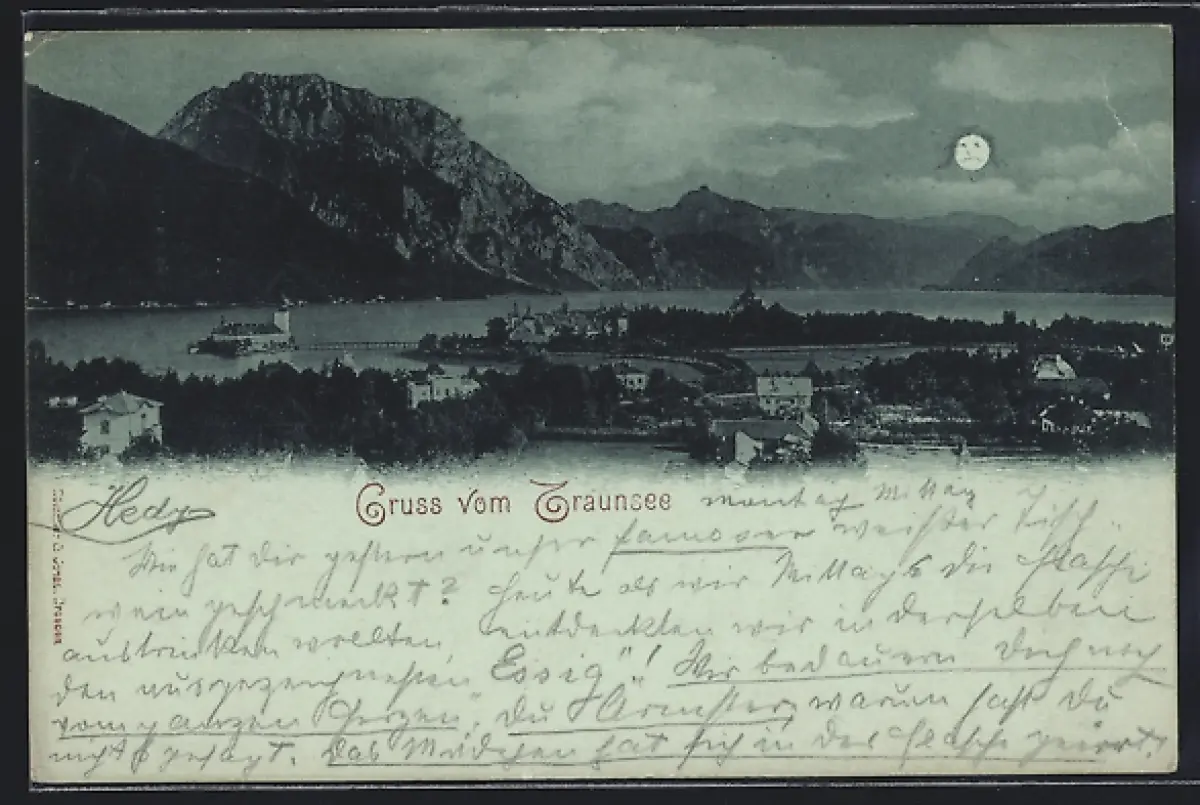 Gruss vom Traunsee
Hedy
Montag Mittag
Wie hat dir gestern unser famoser weißer Tisch-
wein geschmeckt? Heute als wir Mittags die Flasche
austrinken wollten, entdeckten wir in derselben
den ausgezeichnetsten „Essig"! Wir bedauern dich noch
vom ganzen Herzen, du Ärmster, warum hast du
nichts gesagt. Das Mädchen hat sich in der Flasche geirrt!